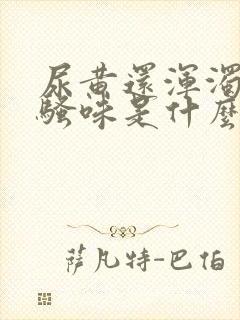 尿黄還渾濁
騷味是什麼
薩凡特-巴伯